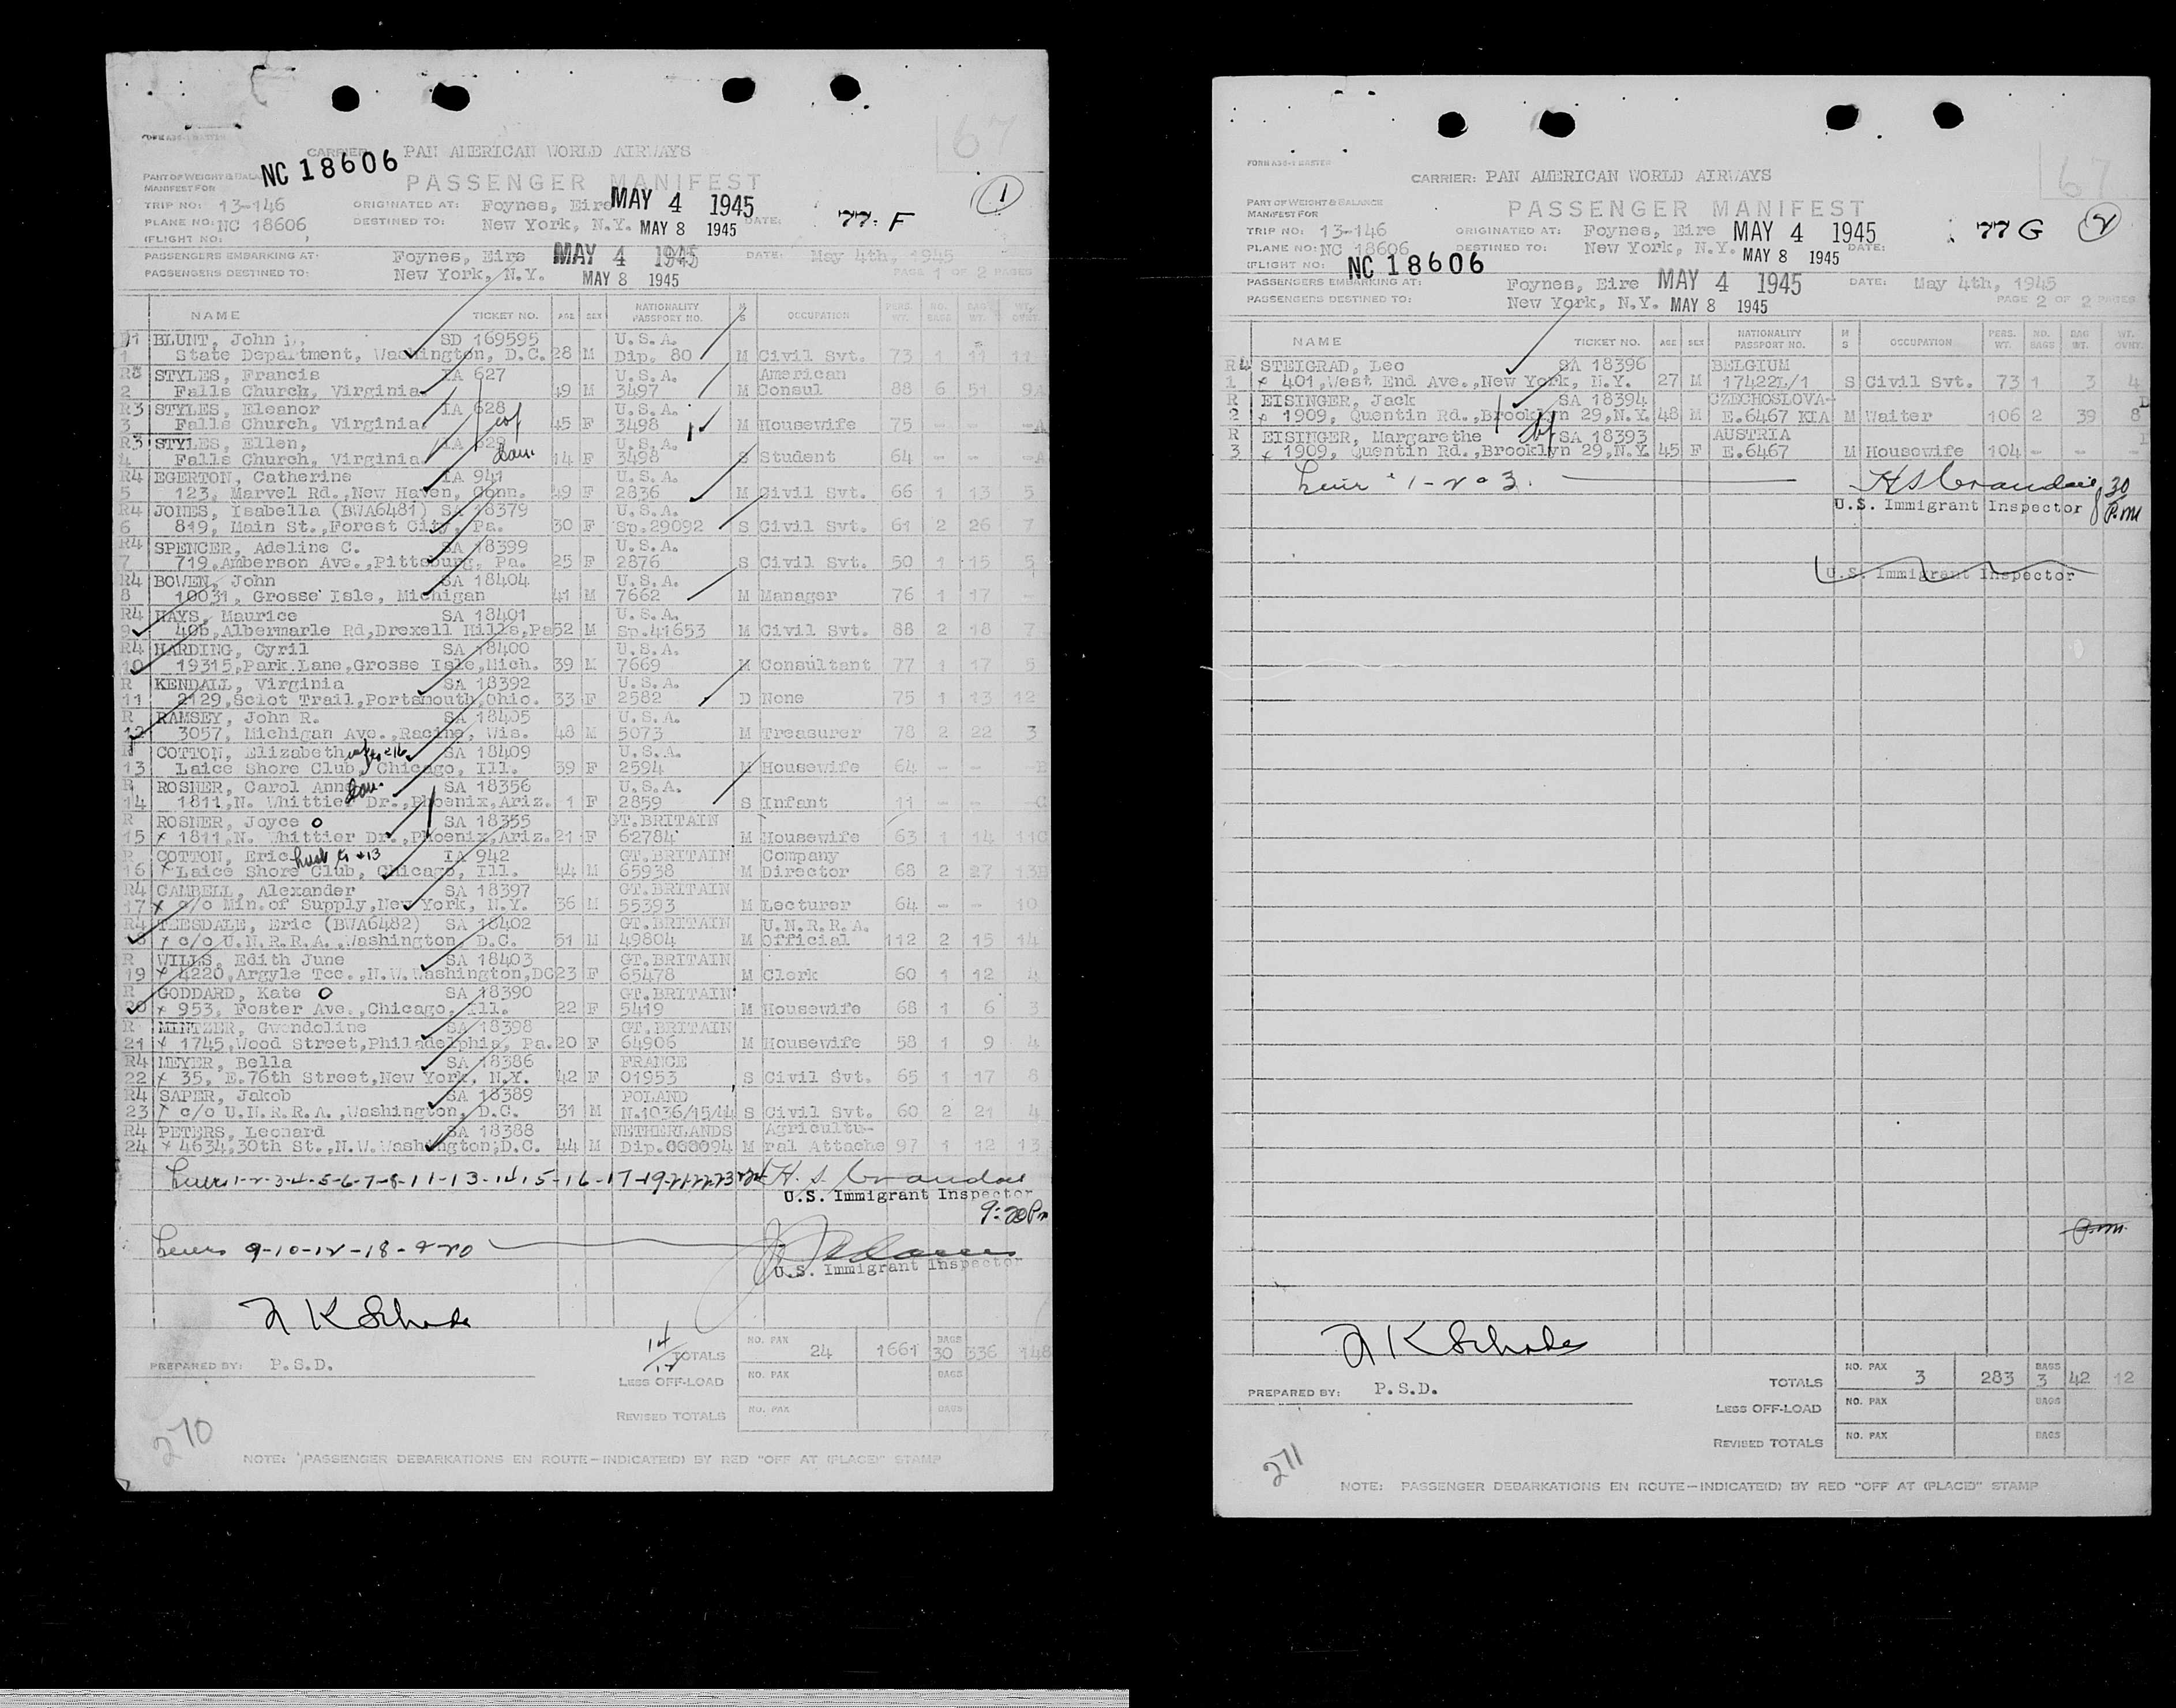 67
CARRIER: PAN AMERICAN WORLD AIRWAYS
NC 18606
PART OF WEIGHT & BALANCE
MANIFEST FOR
PASSENGER MANIFEST
1
TRIP NO: 13-146 ORIGINATED AT: Foynes, Eire MAY 4 1945
77. F
PLANE NO: NC 18606 DESTINED TO: New York, N.Y. MAY 8 1945 DATE:
(FLIGHT NO: )
PASSENGERS EMBARKING AT: Foynes, Eire MAY 4 1945 DATE: May 4th, 1945
PASSENGERS DESTINED TO: New York, N.Y. MAY 8 1945 PAGE 1 OF 2 PAGES
NAME TICKET NO. AGE SEX NATIONALITY PASSPORT NO. M S OCCUPATION PERS. WT. NO. BAGS BAG WT. WT. OVWT.
BLUNT, John SD 169595 U.S.A.
1 State Department, Washington, D.C. 28 M Dip. 80 M Civil Svt. 73 1 11 11
R3 STYLES, Francis IA 627 U.S.A. American
2 Falls Church, Virginia. 49 M 3497 M Consul 88 6 51 9A
R3 STYLES, Eleanor IA 628 U.S.A.
3 Falls Church, Virginia. wf 45 F 3498 M Housewife 75 - - -A
R3 STYLES, Ellen, IA 629 U.S.A.
4 Falls Church, Virginia. Dau. 14 F 3498 S Student 64 - - -A
R4 EGERTON, Catherine IA 941 U.S.A.
5 123, Marvel Rd.,New Haven, Conn. 49 F 2836 M Civil Svt. 66 1 13 5
R4 JONES, Isabella (BWA6481) SA 18379 U.S.A.
6 819, Main St.,Forest City, Pa. 30 F Sp.29092 S Civil Svt. 61 2 26 7
R4 SPENCER, Adeline C. SA 18399 U.S.A.
7 719,Amberson Ave.,Pittsburg, Pa. 25 F 2876 S Civil Svt. 50 1 15 5
R4 BOWEN, John SA 18404 U.S.A.
8 10031, Grosse Isle, Michigan 41 M 7662 M Manager 76 1 17 -
R4 HAYS, Maurice SA 18401 U.S.A.
9 406,Albermarle Rd,Drexell Hills,Pa 52 M Sp.41653 M Civil Svt. 88 2 18 7
R4 HARDING, Cyril SA 18400 U.S.A.
10 19315,Park Lane,Grosse Isle,Mich. 39 M 7669 M Consultant 77 1 17 5
R KENDALL, Virginia SA 18392 U.S.A.
11 2129,Sciot Trail,Portsmouth,Ohio. 33 F 2582 D None 75 1 13 12
R RAMSEY, John R. SA 18405 U.S.A.
12 3057, Michigan Ave.,Racine, Wis. 48 M 5073 M Treasurer 78 2 22 3
R COTTON, Elizabeth SA 18409 U.S.A.
13 Laice Shore Club, Chicago, Ill. 39 F 2594 M Housewife 64 - - -B
R ROSNER, Carol Anne Dau. SA 18356 U.S.A.
14 1811,N. Whittier Dr.,Phoenix,Ariz. 1 F 2859 S Infant 11 - - -C
R ROSNER, Joyce o SA 18355 GT.BRITAIN
15 x 1811,N. Whittier Dr.,Phoenix,Ariz. 21 F 62784 M Housewife 63 1 14 11C
R COTTON, Eric husb to #13 IA 942 GT.BRITAIN Company
16 x Laice Shore Club, Chicago, Ill. 44 M 65938 M Director 68 2 27 13B
R4 CAMBELL, Alexander SA 18397 GT.BRITAIN
17 x c/o Min.of Supply,New York, N.Y. 36 M 55393 M Lecturer 64 - - 10
R4 TEESDALE, Eric (BWA6482) SA 18402 GT.BRITAIN U.N.R.R.A.
18 x c/o U.N.R.R.A.,Washington, D.C. 51 M 49804 M Official 112 2 15 14
R WILLS, Edith June SA 18403 GT.BRITAIN
19 x 4220,Argyle Tce.,N.W.Washington,DC 23 F 65478 M Clerk 60 1 12 4
R GODDARD, Kate o SA 18390 GT.BRITAIN
20 x 953, Foster Ave.,Chicago, Ill. 22 F 5419 M Housewife 68 1 6 3
R MINTZER, Gwendoline SA 18398 GT.BRITAIN
21 x 1745,Wood Street,Philadelphia, Pa. 20 F 64906 M Housewife 58 1 9 4
R4 MEYER, Bella SA 18386 FRANCE
22 x 35, E.76th Street,New York, N.Y. 42 F 01953 S Civil Svt. 65 1 17 8
R4 SAPER, Jakob SA 18389 POLAND
23 x c/o U.N.R.R.A.,Washington, D.C. 31 M N.1036/15/44 S Civil Svt. 60 2 21 4
R4 PETERS, Leonard SA 18388 NETHERLANDS Agricultu-
24 x 4634,30th St.,N.W.Washington,D.C. 44 M Dip.000094 M ral Attache 97 1 12 13
1-2-3-4-5-6-7-8-11-13-14-15-16-17-19-21-22-23
U.S. Immigrant Inspector
9:20 Pm
9-10-12-18-&20
U.S. Immigrant Inspector
14/12
TOTALS NO. PAX 24 1661 BAGS 30 336 148
PREPARED BY: P.S.D.
LESS OFF-LOAD NO. PAX BAGS
REVISED TOTALS NO. PAX BAGS
270
NOTE: PASSENGER DEBARKATIONS EN ROUTE—INDICATE(D) BY RED "OFF AT (PLACE)" STAMP
67
FORM A36-1 MASTER
CARRIER: PAN AMERICAN WORLD AIRWAYS
PART OF WEIGHT & BALANCE
MANIFEST FOR
PASSENGER MANIFEST
77 G
2
TRIP NO: 13-146 ORIGINATED AT: Foynes, Eire MAY 4 1945
PLANE NO: NC 18606 DESTINED TO: New York, N.Y. MAY 8 1945 DATE:
(FLIGHT NO: NC 18606
PASSENGERS EMBARKING AT: Foynes, Eire MAY 4 1945 DATE: May 4th, 1945
PASSENGERS DESTINED TO: New York, N.Y. MAY 8 1945 PAGE 2 OF 2 PAGES
NAME TICKET NO. AGE SEX NATIONALITY PASSPORT NO. M S OCCUPATION PERS. WT. NO. BAGS BAG WT. WT. OVWT.
R4 STEIGRAD, Leo SA 18396 BELGIUM
1 x 401,West End Ave.,New York, N.Y. 27 M 17422L/1 S Civil Svt. 73 1 3 4
R EISINGER, Jack SA 18394 CZECHOSLOVA-
2 x 1909, Quentin Rd.,Brooklyn 29,N.Y. 48 M E.6467 KIA M Waiter 106 2 39 8
R EISINGER, Margarethe wf SA 18393 AUSTRIA
3 x 1909, Quentin Rd.,Brooklyn 29,N.Y. 45 F E.6467 M Housewife 104 - - -
1-2 & 3.
U.S. Immigrant Inspector
8 30 P.M
U.S. Immigrant Inspector
P.m.
TOTALS NO. PAX 3 283 BAGS 3 42 12
PREPARED BY: P.S.D.
LESS OFF-LOAD NO. PAX BAGS
REVISED TOTALS NO. PAX BAGS
271
NOTE: PASSENGER DEBARKATIONS EN ROUTE—INDICATE(D) BY RED "OFF AT (PLACE)" STAMP